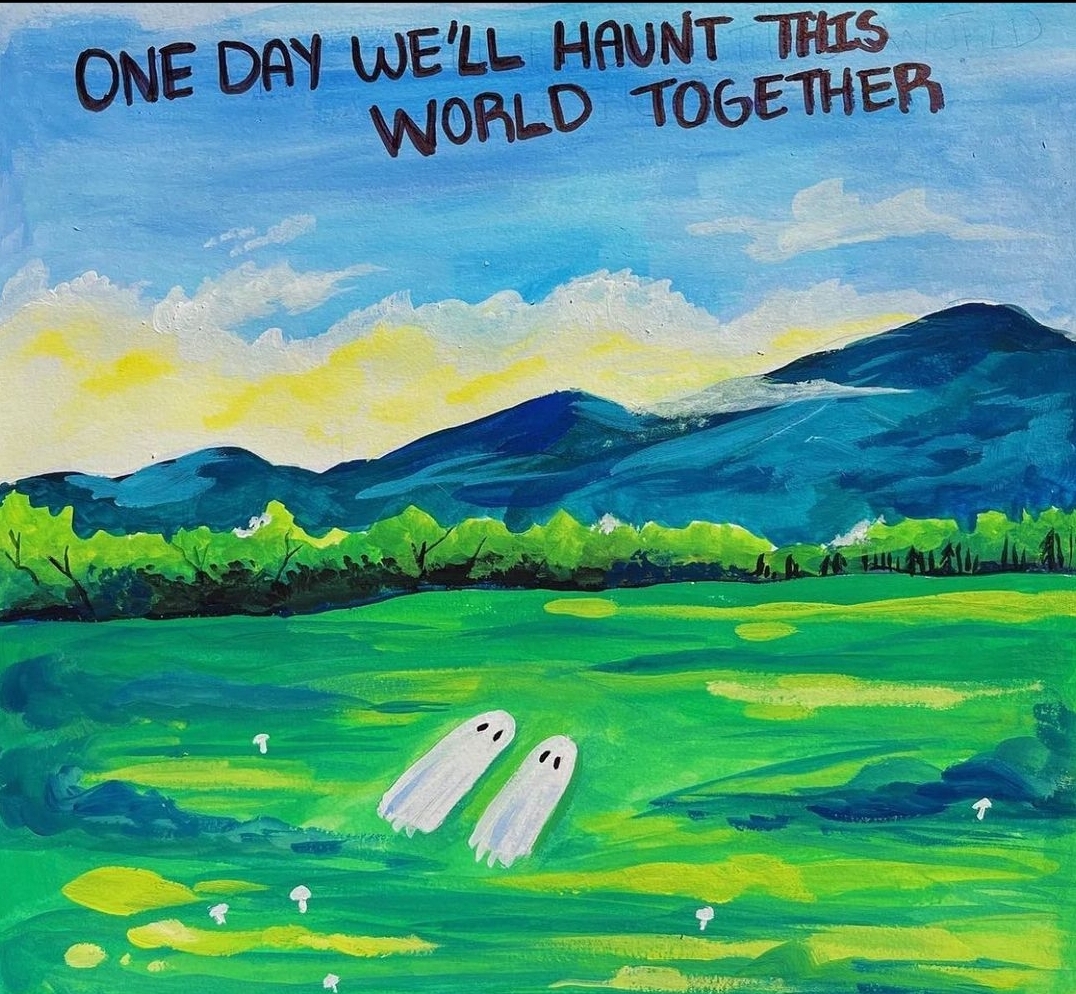 ONE DAY WE'LL HAUNT THIS
WORLD TOGETHER